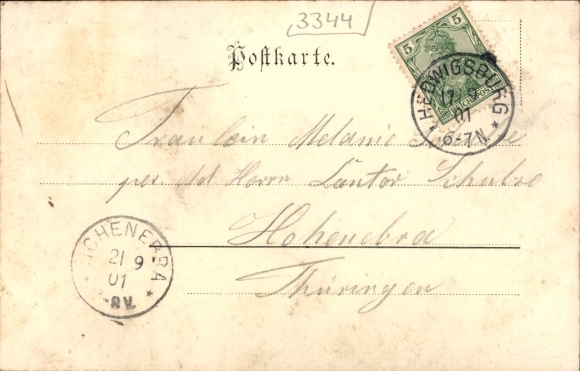 3344
Postkarte.
5 5
HEDWIGSBURG
17 9
01
6-7N.
Fräulein Melanie
per. Ad Herrn Cantor Schulze
Hohenebra
Thüringen
HOHENEBRA
21 9
01
-8V.